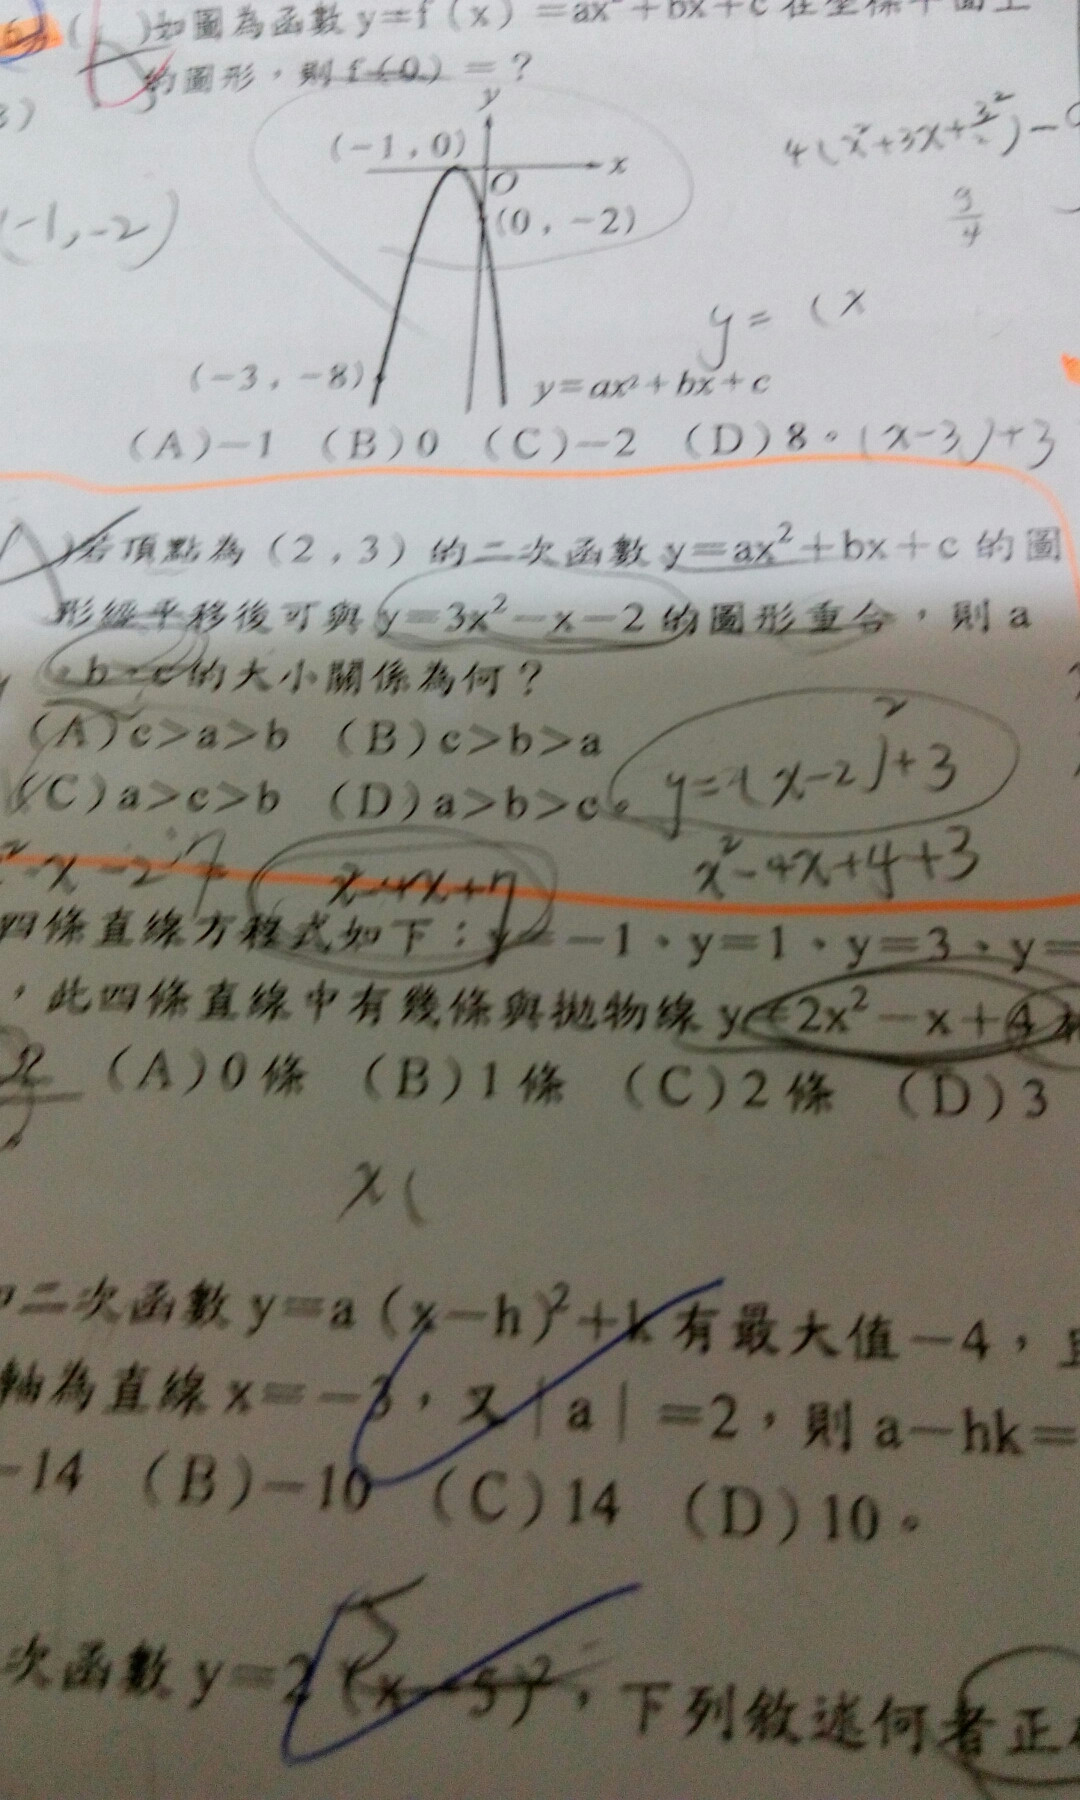 ( )如圖為函數 y=f(x)=ax²+bx+c 在坐標平面上
的圖形,則 f(0)=?
3)
y
(-1,0)
x
O
(0,-2)
4(x²+3x+
9/4
(-1,-2)
y=(x
(-3,-8)
y=ax²+bx+c
(A)-1 (B)0 (C)-2 (D)8。(x-3)+3
)若頂點為(2,3)的二次函數 y=ax²+bx+c 的圖
形經平移後可與 y=3x²-x-2 的圖形重合,則 a
、b、c 的大小關係為何?
(A)c>a>b (B)c>b>a
(C)a>c>b (D)a>b>c。
y=(x-2)²+3
x²-4x+4+3
x²-4x+7
四條直線方程式如下:y=-1、y=1、y=3、y=
,此四條直線中有幾條與拋物線 y=2x²-x+4
(A)0條 (B)1條 (C)2條 (D)3
x(
二次函數 y=a(x-h)²+k 有最大值-4,且
軸為直線 x=-3,又|a|=2,則 a-hk=
-14 (B)-10 (C)14 (D)10。
5
次函數 y=2(x-5)²,下列敘述何者正確